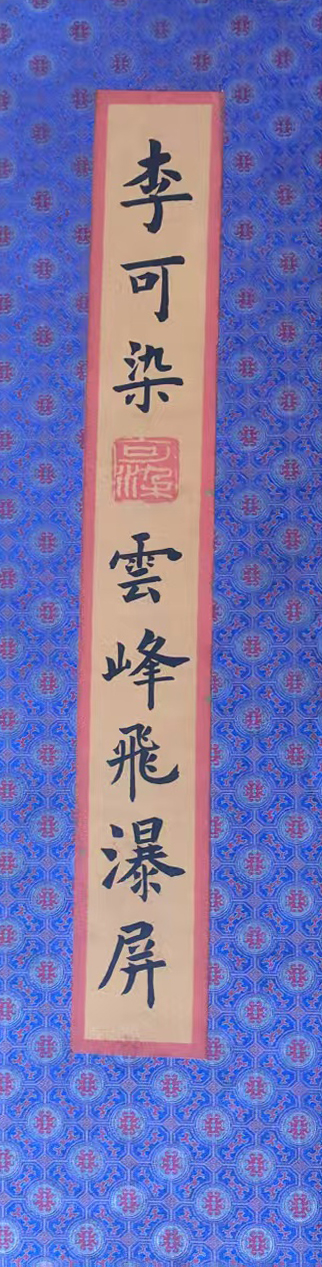 李可染
可染
雲峰飛瀑屏